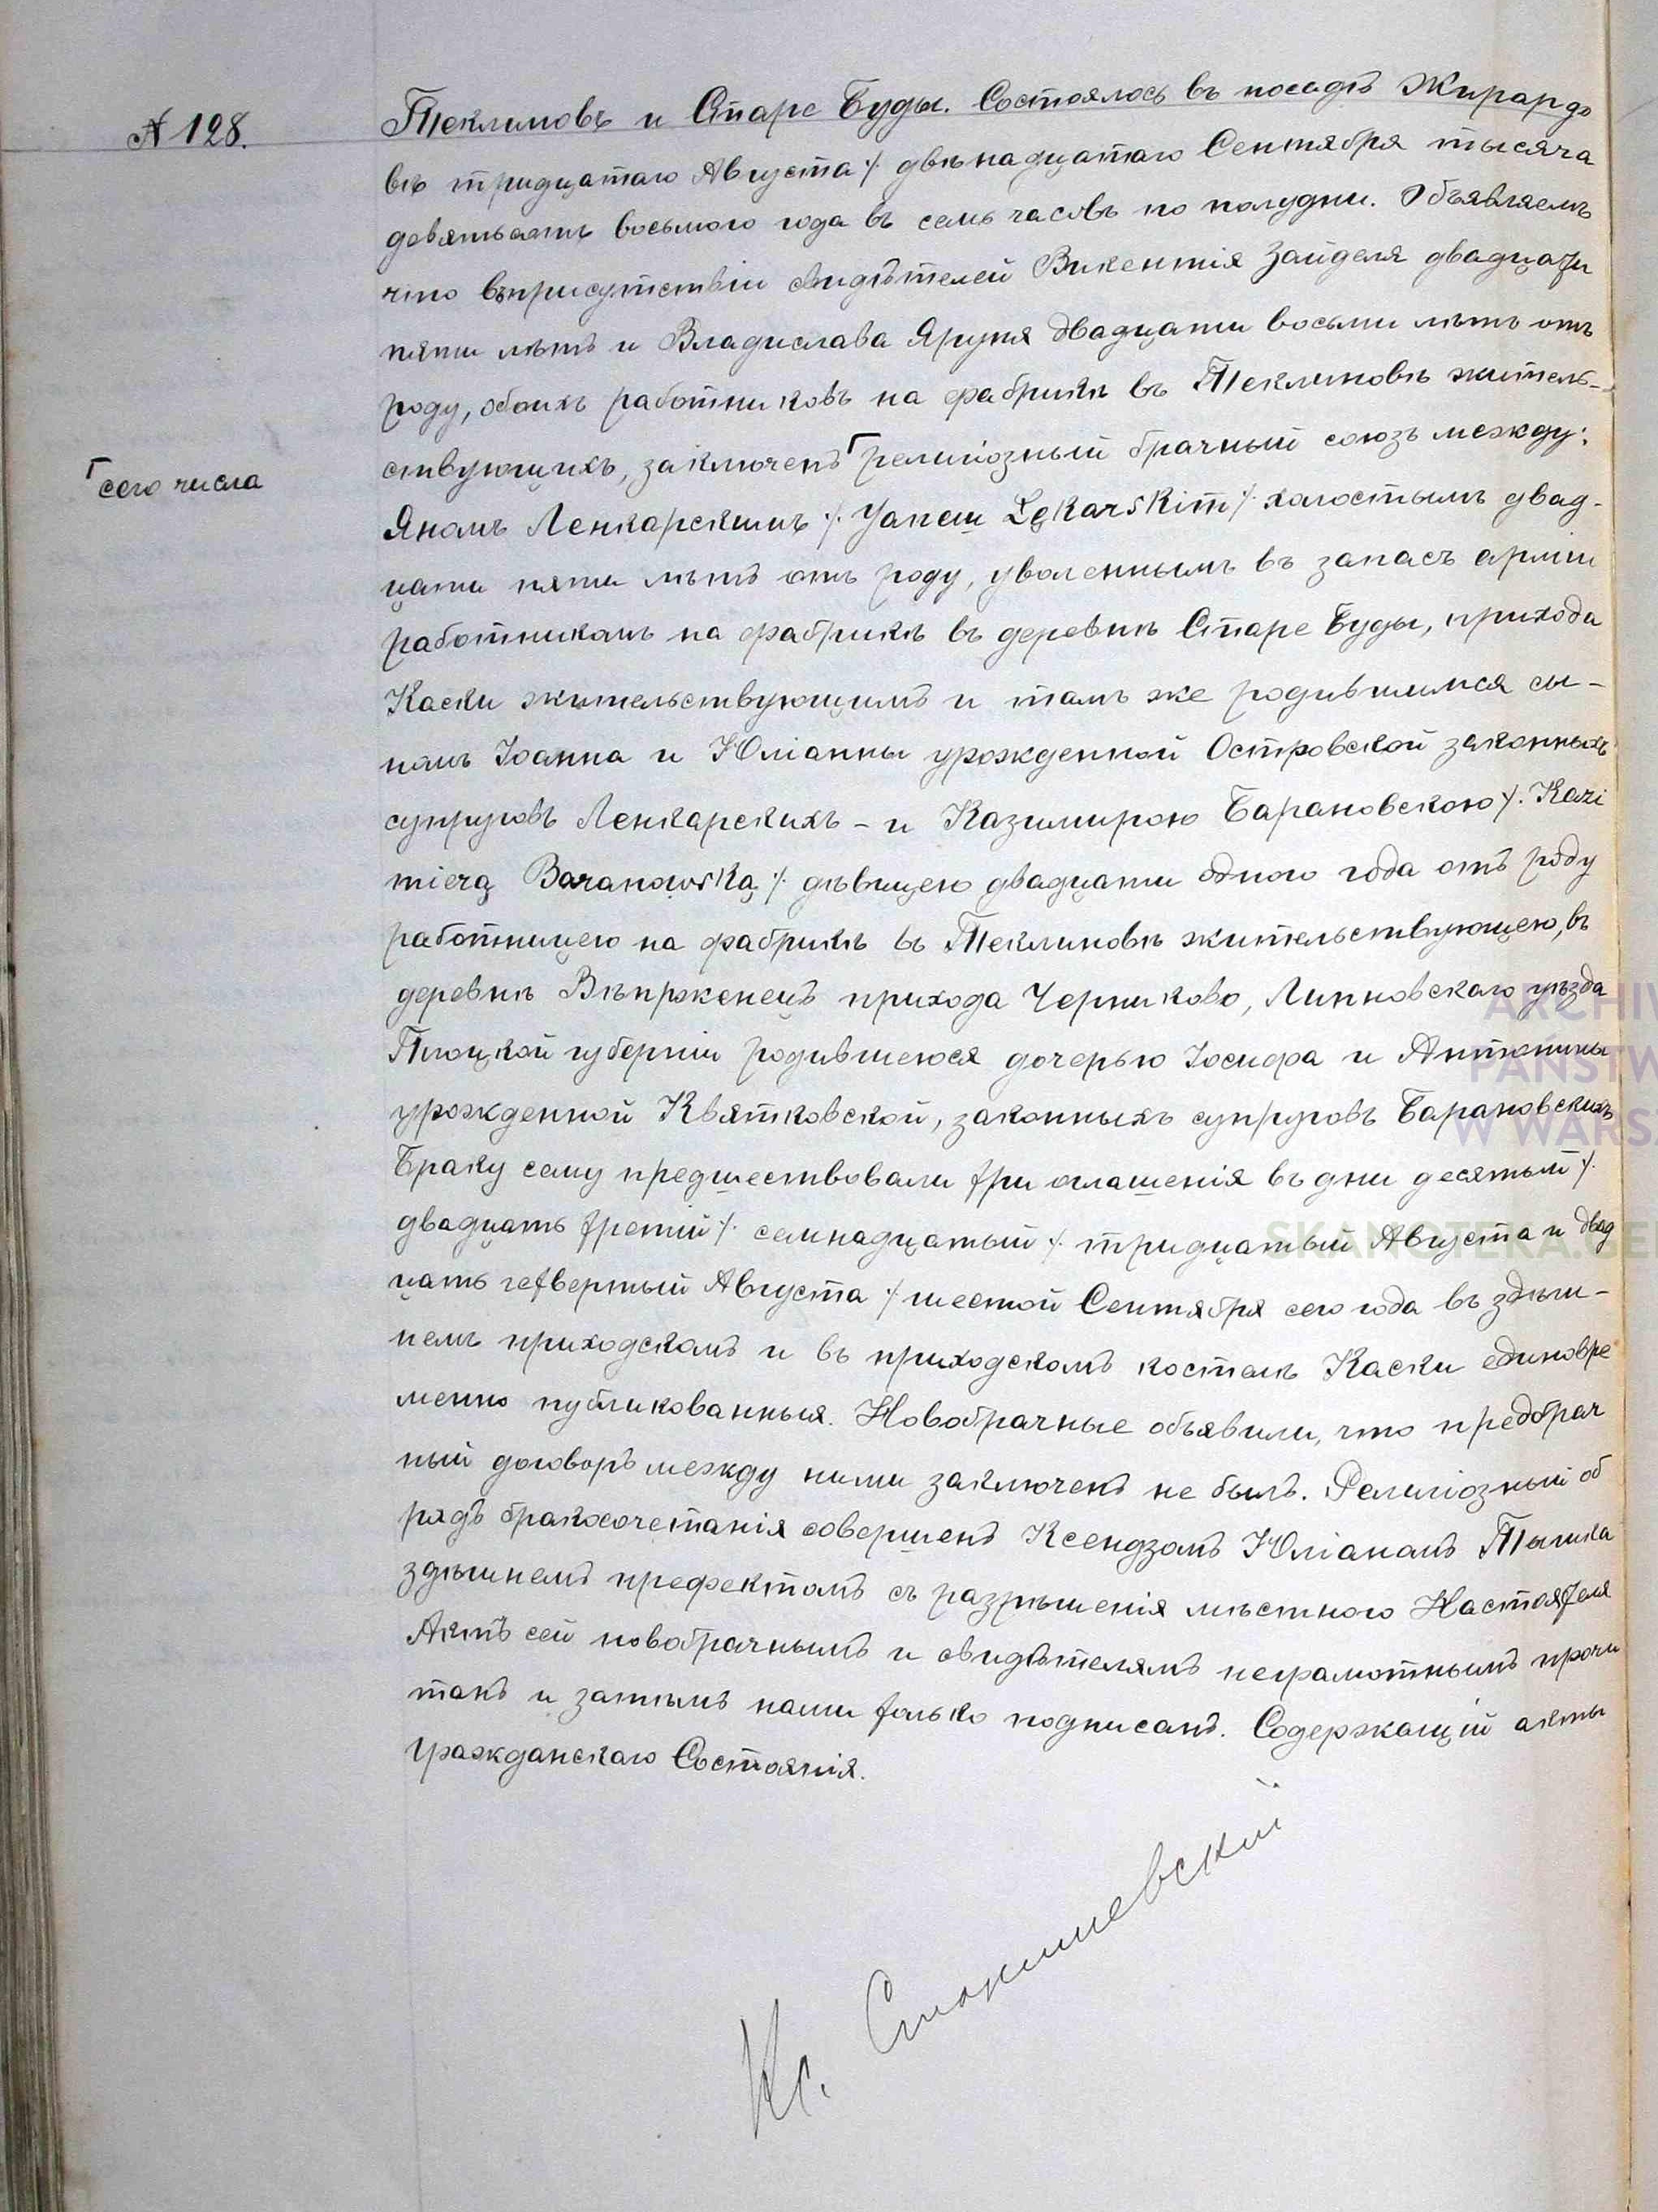 № 128.
Теклиновъ и Старе Буды. Состоялось въ посадѣ Жирардо
вѣ тридцатаго Августа /. двѣнадцатаго Сентября тысяча
девятьсотъ восьмого года въ семь часовъ по полудни. Объявляемъ
что въ присутствіи свидѣтелей Викентія Зайделя двадцати
пяти лѣтъ и Владислава Яруня двадцати восьми лѣтъ отъ
роду, обоихъ работниковъ на фабрикѣ въ Теклиновѣ житель-
ствующихъ, заключенъ Г религіозный брачный союзъ между:
Г сего числа
Яномъ Ленкарскимъ /. Janem Lękarskim /. холостымъ двад-
цати пяти лѣтъ отъ роду, уволеннымъ въ запасъ арміи
работникомъ на фабрикѣ въ деревнѣ Старе Буды, прихода
Каски жительствующимъ и тамъ же родившимся сы-
номъ Іоанна и Юліанны урожденной Островской законныхъ
супруговъ Ленкарскихъ - и Казимирою Барановскою /. Kazi
mierą Baranowską /. дѣвицею двадцати одного года отъ роду
работницею на фабрикѣ въ Теклиновѣ жительствующею, въ
деревнѣ прихода Черниково, Липновскаго уѣзда
Плоцкой губерніи родившеюся дочерью Іосифа и Антонины
урожденной Квятковской, законныхъ супруговъ Барановскихъ
Браку сему предшествовали три оглашенія въ дни десятый /.
двадцать третій /. семнадцатый /. тридцатый Августа и двад
цать четвертый Августа /. шестой Сентября сего года въ здѣш-
немъ приходскомъ и въ приходскомъ костелѣ Каски единовре
менно публикованныя. Новобрачные объявили, что предбрач
ный договоръ между ними заключенъ не былъ. Религіозный об
рядъ бракосочетанія совершенъ Ксендзомъ Юліаномъ Тышка
здѣшнемъ префектомъ съ разрѣшенія мѣстного Настоятеля
Актъ сей новобрачнымъ и свидѣтелямъ неграмотнымъ прочи
танъ и затѣмъ нами только подписанъ. Содержащій акты
Гражданскаго Состоянія.
Кс.
ARCHIW
PAŃSTW
W WARSZ
SKANOTEKA.GE